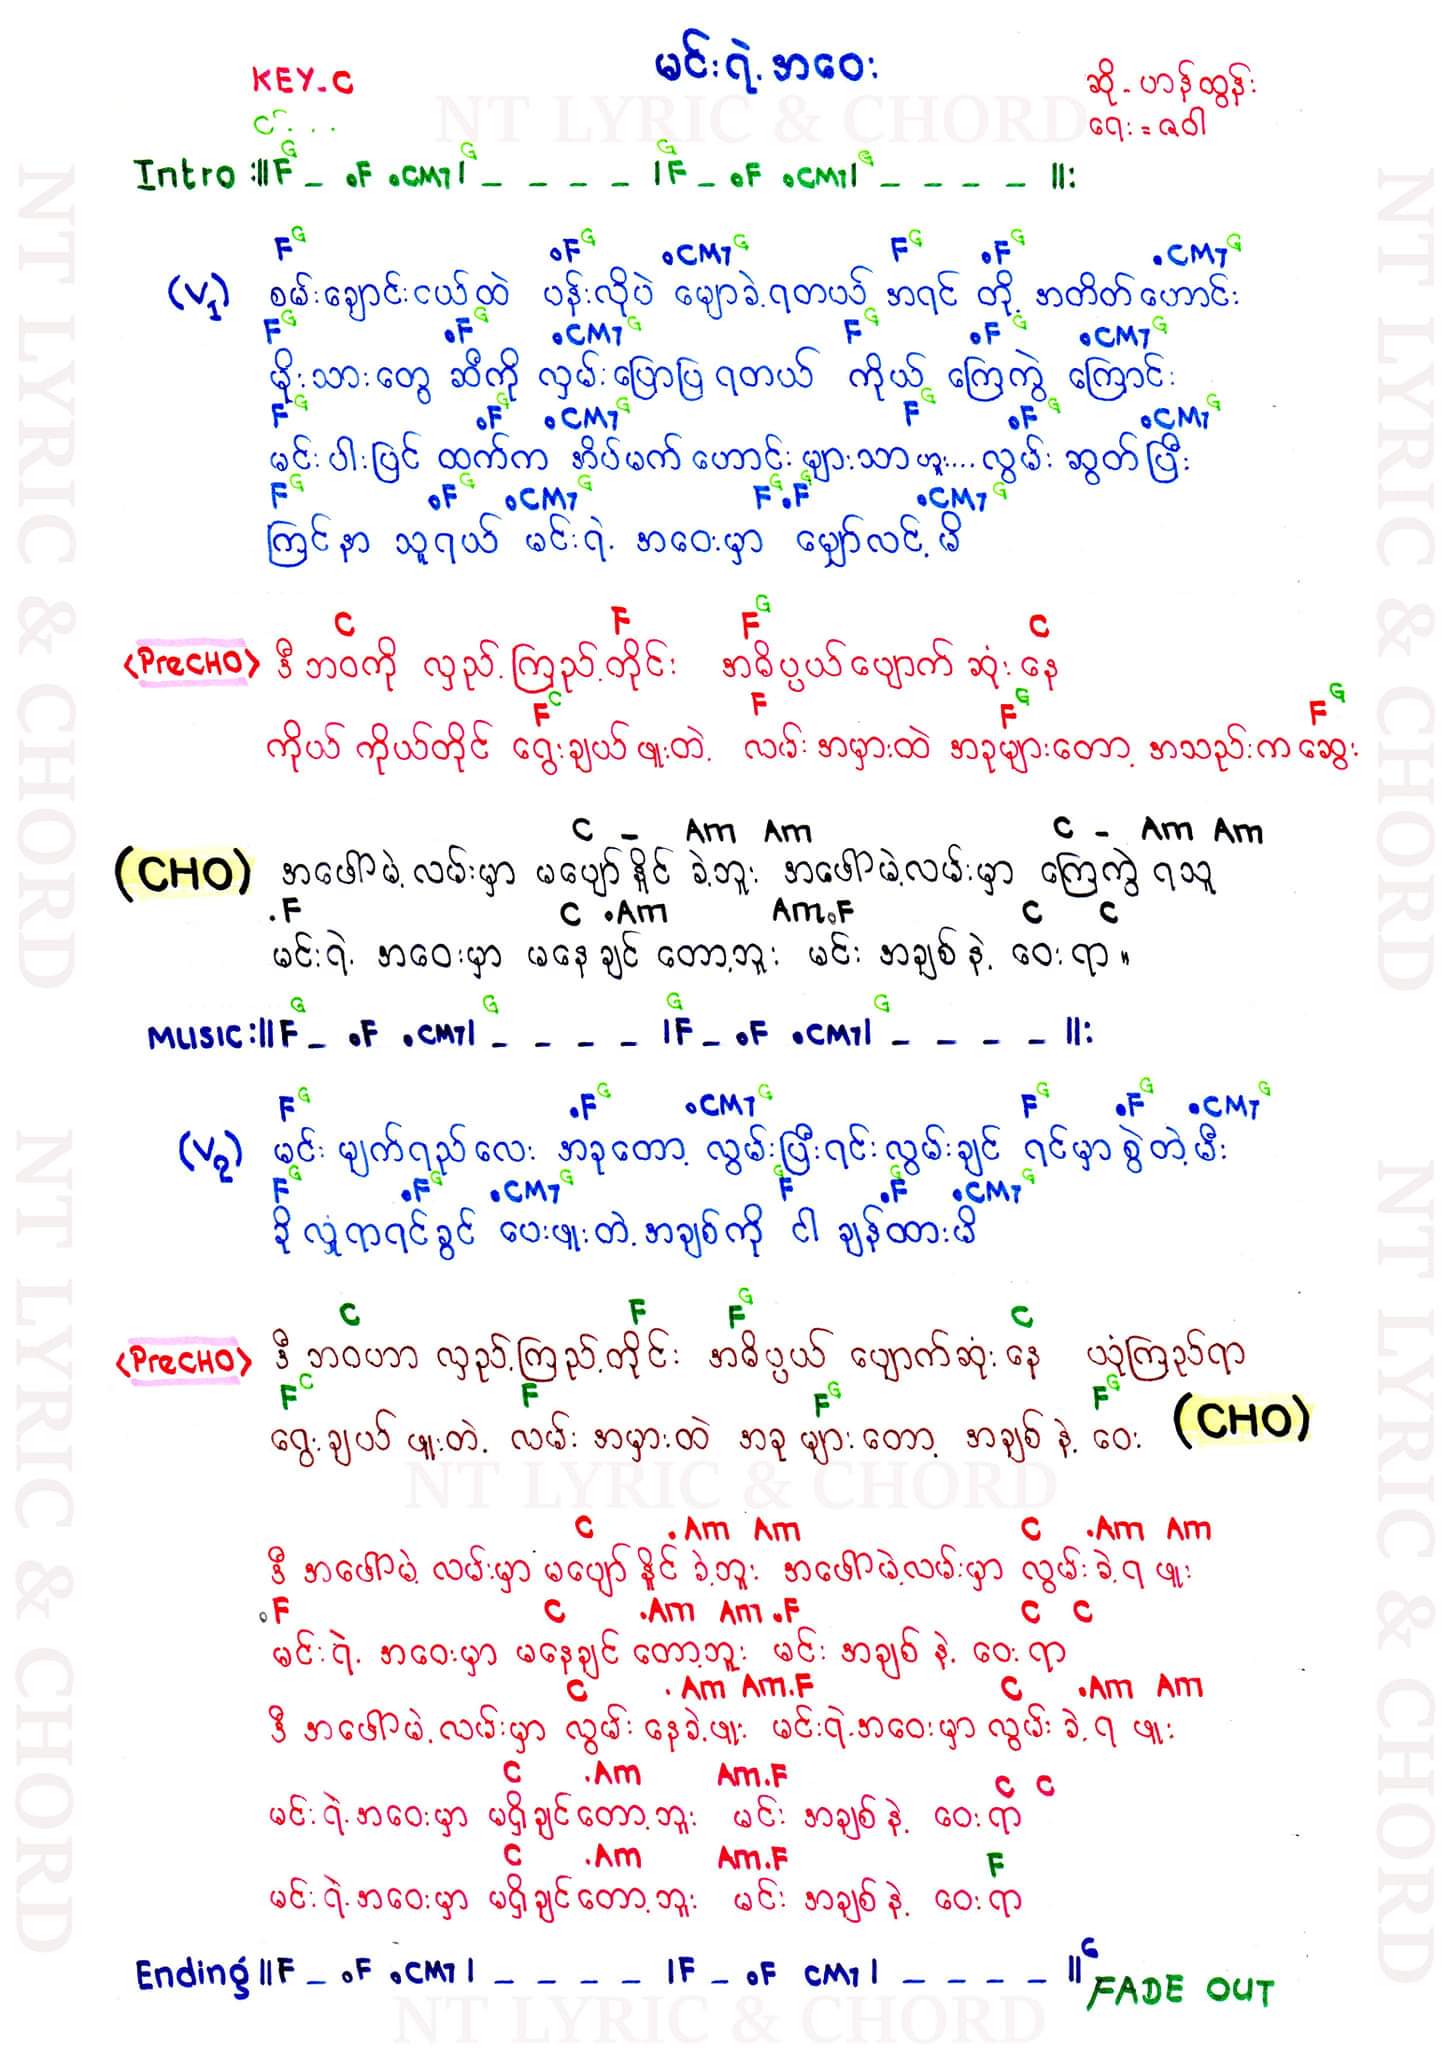 မင်းရဲ့အဝေး
KEY-C
ဆို - ဟန်ထွန်း
ရေး = ဇဝါ
NT LYRIC & CHORD
Intro :||F G _ .F .CM7| G _ _ _ _ |F G _ .F .CM7| G _ _ _ _ ||:
F G .F G .CM7 G F G .F G .CM7 G
(V1) စမ်းချောင်းငယ်ထဲ ပန်းလိုပဲ မျောခဲ့ရတယ် အရင် တို့ အတိတ်ဟောင်း
F G .F G .CM7 G F G .F G .CM7 G
မိုးသားတွေ ဆီကို လှမ်းပြောပြ ရတယ် ကိုယ့် ကြေကွဲ ကြောင်း
F G .F G .CM7 G F G .F G .CM7 G
မင်းပါးပြင် ထက်က အိပ်မက်ဟောင်းများသာဟူး... လွမ်းဆွတ်ပြီး
F G .F G .CM7 G F G .F G .CM7 G
ကြင်နာ သူရယ် မင်းရဲ့ အဝေးမှာ မျှော်လင့်မိ
C F F G C
<PreCHO> ဒီဘဝကို လှည့်ကြည့်တိုင်း အဓိပ္ပယ်ပျောက်ဆုံးနေ
F C F F G F G
ကိုယ် ကိုယ်တိုင် ရွေးချယ်ဖူးတဲ့ လမ်းအမှားထဲ အခုများတော့ အသည်းကဆွေး
C - Am Am C - Am Am
(CHO) အဖော်မဲ့လမ်းမှာ မပျော်နိူင်ခဲ့ဘူး အဖော်မဲ့လမ်းမှာ ကြေကွဲရသူ
.F C .Am Am.F C C
မင်းရဲ့ အဝေးမှာ မနေချင်တော့ဘူး မင်း အချစ်နဲ့ ဝေးရာ။
MUSIC:||F G _ .F .CM7| G _ _ _ _ |F G _ .F .CM7| G _ _ _ _ ||:
F G .F G .CM7 G F G .F G .CM7 G
(V2) မင်း မျက်ရည်လေး အခုတော့ လွမ်းပြီးရင်းလွမ်းချင် ရင်မှာစွဲတဲ့မီး
F G .F G .CM7 G F G .F G .CM7 G
ခိုလှုံရာရင်ခွင် ပေးဖူးတဲ့အချစ်ကို ငါ ချန်ထားမိ
C F F G C
<PreCHO> ဒီဘဝဟာ လှည့်ကြည့်တိုင်း အဓိပ္ပယ် ပျောက်ဆုံးနေ ယုံကြည်ရာ
F C F F G F G
ရွေးချယ်ဖူးတဲ့ လမ်းအမှားထဲ အခုများတော့ အချစ်နဲ့ ဝေး (CHO)
NT LYRIC & CHORD
C .Am Am C .Am Am
ဒီ အဖော်မဲ့ လမ်းမှာ မပျော်နိူင်ခဲ့ဘူး အဖော်မဲ့လမ်းမှာ လွမ်းခဲ့ရဖူး
.F C .Am Am.F C C
မင်းရဲ့ အဝေးမှာ မနေချင်တော့ဘူး မင်း အချစ်နဲ့ ဝေးရာ
C .Am Am.F C .Am Am
ဒီ အဖော်မဲ့လမ်းမှာ လွမ်းနေခဲ့ဖူး မင်းရဲ့အဝေးမှာ လွမ်းခဲ့ရဖူး
C .Am Am.F C C
မင်းရဲ့အဝေးမှာ မရှိချင်တော့ဘူး မင်း အချစ်နဲ့ ဝေးရာ
C .Am Am.F F
မင်းရဲ့အဝေးမှာ မရှိချင်တော့ဘူး မင်း အချစ်နဲ့ ဝေးရာ
Ending ||F _ .F .CM7 | _ _ _ _ |F _ .F CM7 | _ _ _ _ || G FADE OUT
NT LYRIC & CHORD
NT LYRIC & CHORD
NT LYRIC & CHORD
NT LYRIC & CHORD
NT LYRIC & CHORD